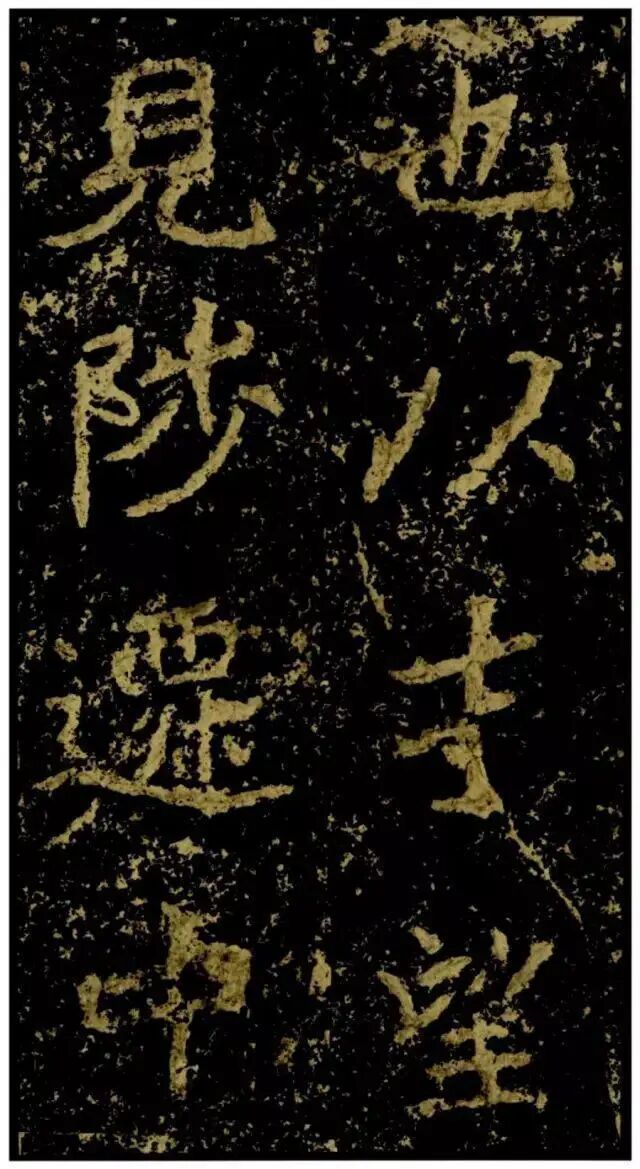 也以才望
見陟遷中